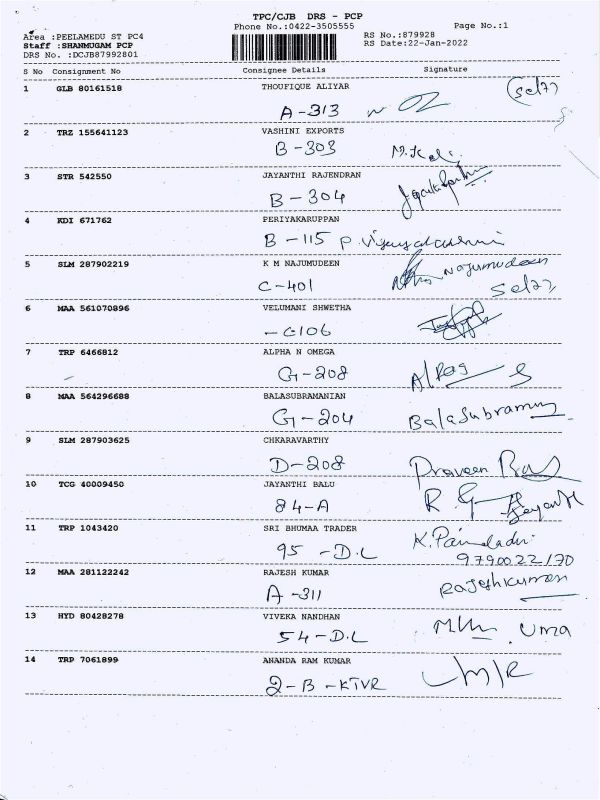 TPC/CJB DRS - PCP
Phone No.:0422-3505555 Page No.:1
Area :PEELAMEDU ST PC4 RS No.:879928
Staff :SHANMUGAM PCP RS Date:22-Jan-2022
DRS No. :DCJB87992801
S No Consignment No Consignee Details Signature
1 GLB 80161518 THOUFIQUE ALIYAR
A-313
2 TRZ 155641123 VASHINI EXPORTS
B-303
3 STR 542550 JAYANTHI RAJENDRAN
B-304
4 KDI 671762 PERIYAKARUPPAN
B-115 P. Vijayalakshmi
5 SLM 287902219 K M NAJUMUDEEN
C-401 Najumudeen
6 MAA 561070896 VELUMANI SHWETHA
-C106
7 TRP 6466812 ALPHA N OMEGA
G-208
8 MAA 564296688 BALASUBRAMANIAN
G-204 Balasubramany
9 SLM 287903625 CHKARAVARTHY
D-208 Praveen
10 TCG 40009450 JAYANTHI BALU
84-A
11 TRP 1043420 SRI BHUMAA TRADER
95-D.L
12 MAA 281122242 RAJESH KUMAR
A-311 Rajeshkumar
13 HYD 80428278 VIVEKA NANDHAN
54-D.L Uma
14 TRP 7061899 ANANDA RAM KUMAR
2-B-KTVR